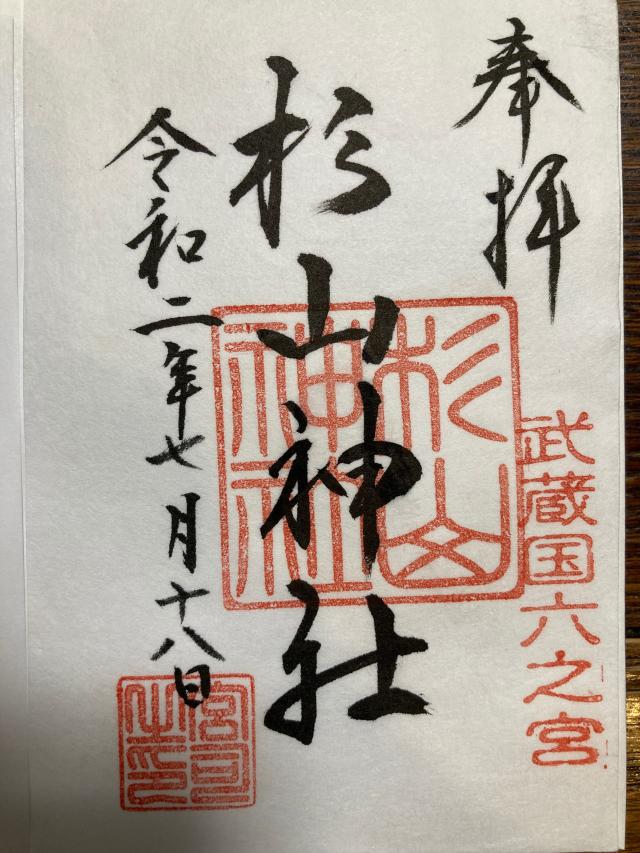 奉拝
武蔵国六之宮
杉山神社
杉山神社
令和二年七月十八日
宮司之印